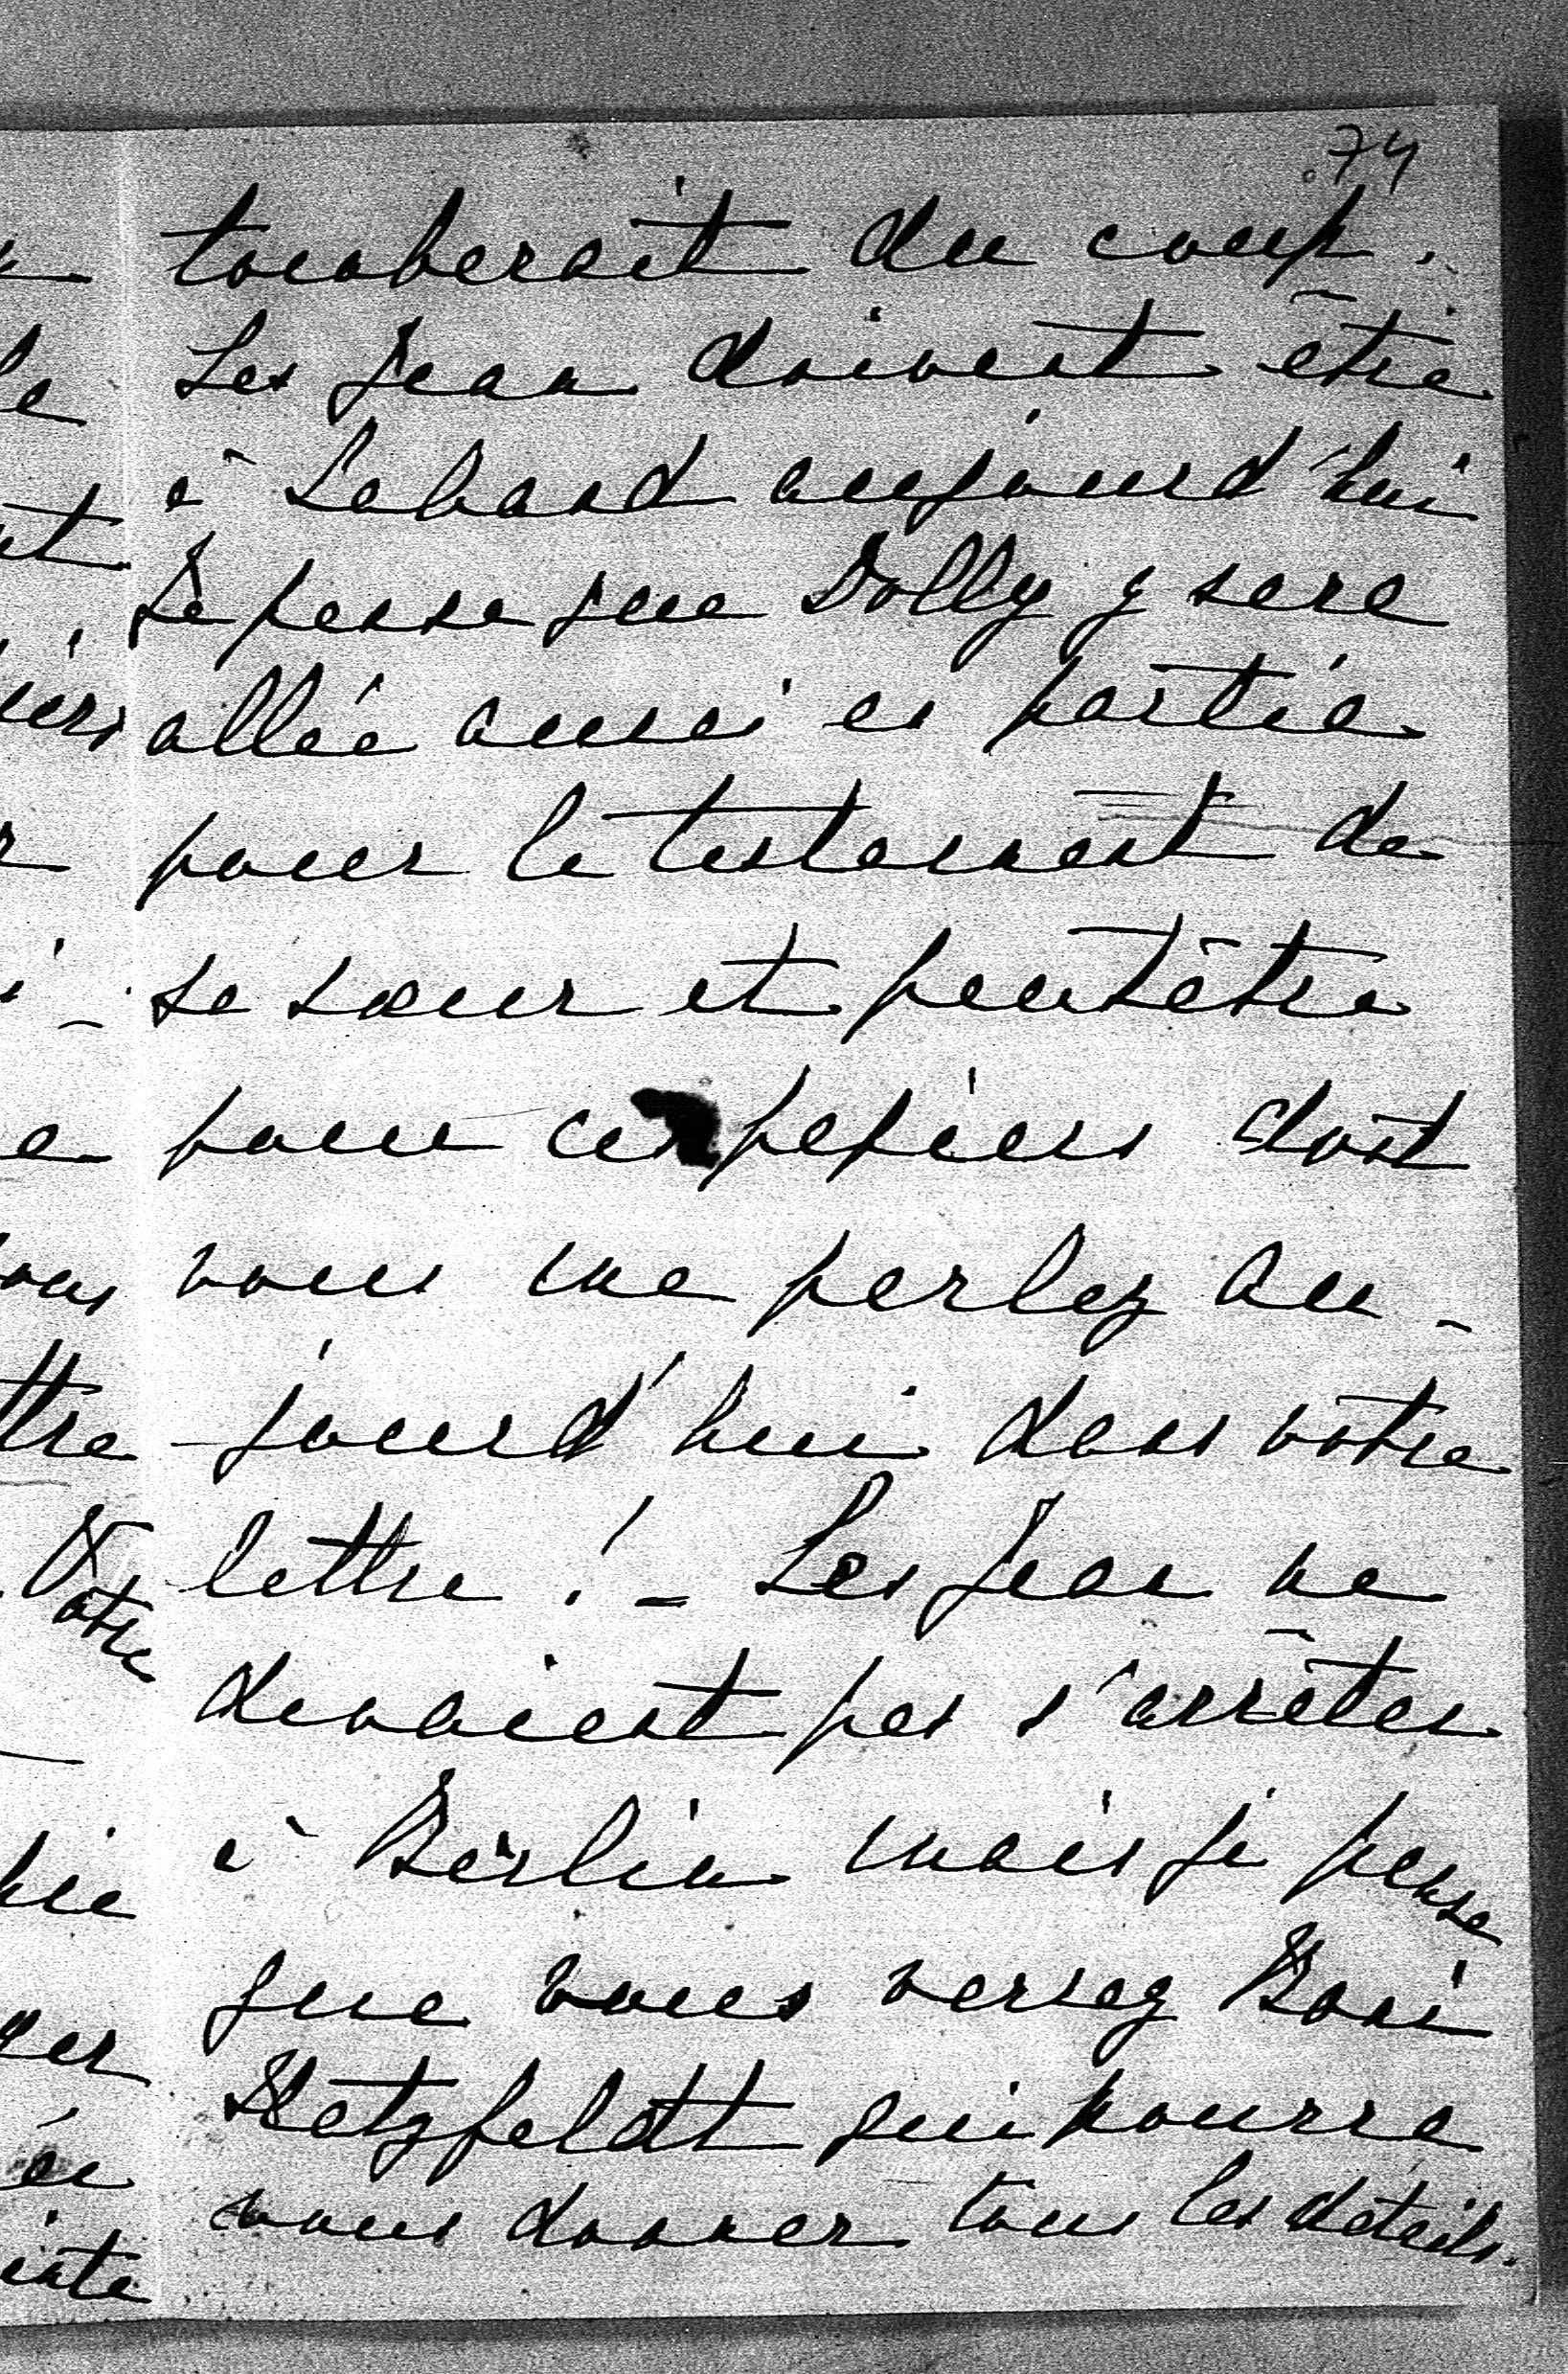 74
tomberait du coup.
Les Jean doivent être
à Saband aujourd'hui
Je pense que Dolly y sera
allée aussi en partie
pour le testament de
sa sœur et peutêtre
pour ces papiers dont
vous me parlez au-
jourd'hui dans votre
lettre ! - Les Jean ne
devaient pas s'arrêter
à Berlin mais je pense
que vous verrez Boni
Hatzfeldt qui pourra
vous donner tous les détails.